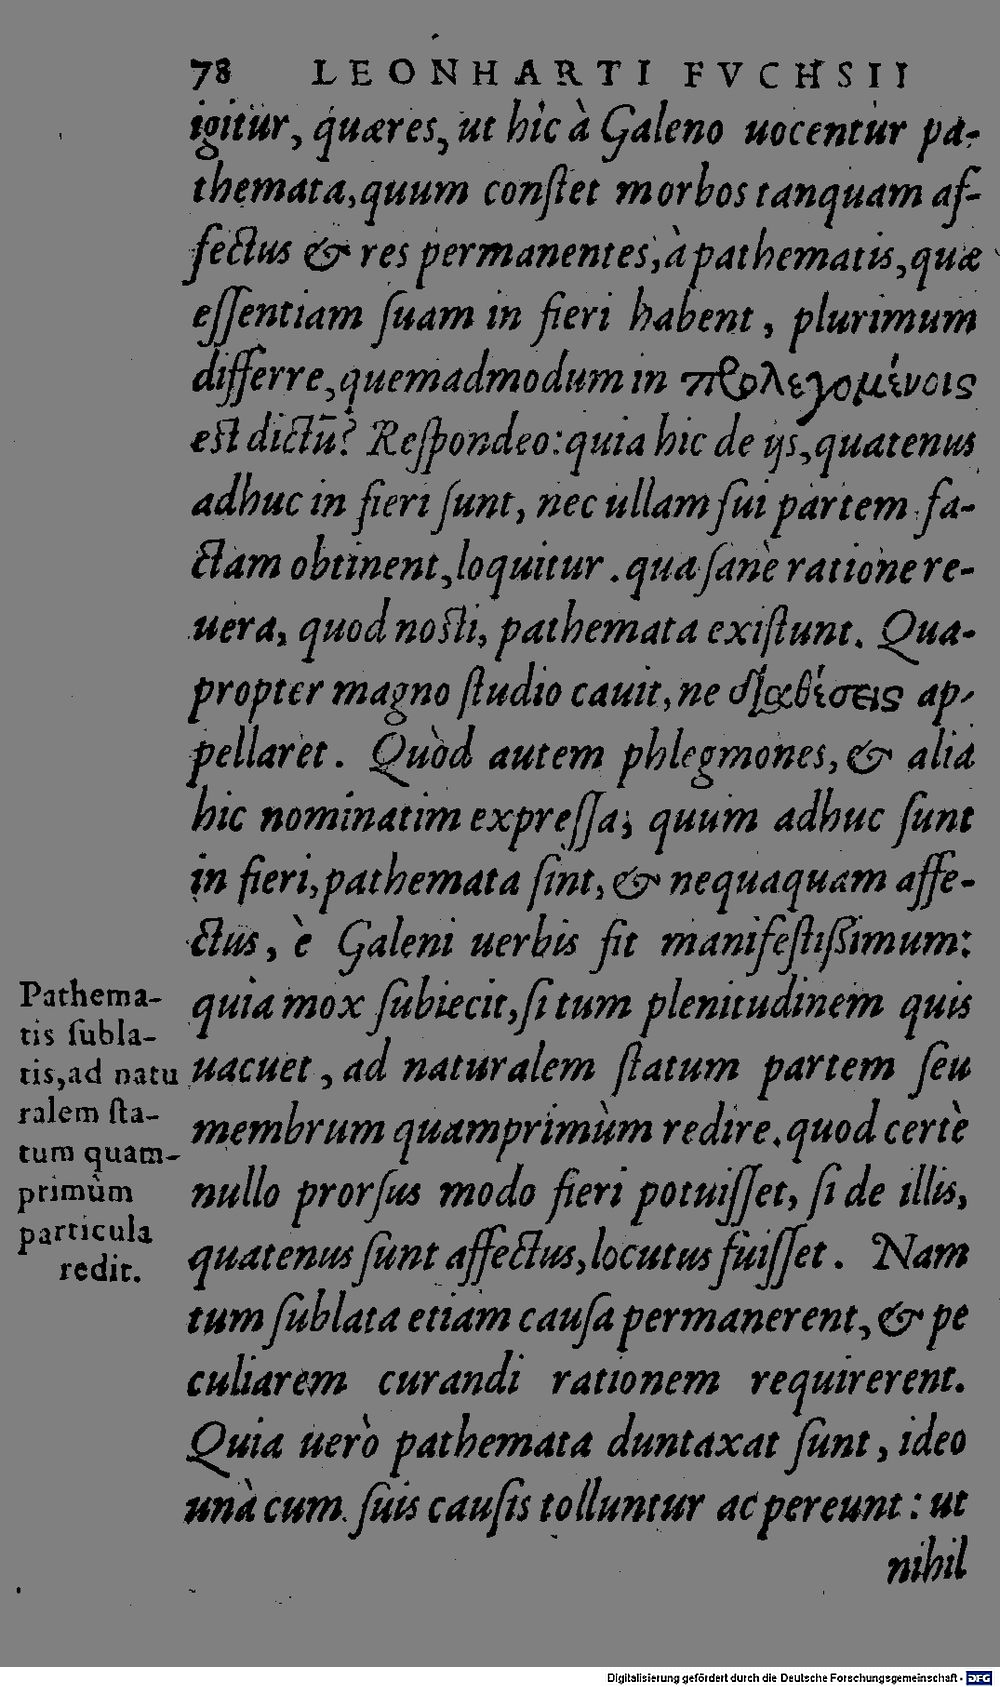 78 LEONHARTI FVCHSII
igitur, quæres, ut hîc à Galeno uocentur pa-
themata, quum conſtet morbos tanquam af-
fectus & res permanentes, à pathematis, quæ
eſſentiam ſuam in fieri habent, plurimum
differre, quemadmodum in προλεγομένοις
eſt dictũ? Reſpondeo: quia hic de ijs, quatenus
adhuc in fieri ſunt, nec ullam ſui partem fa-
ctam obtinent, loquitur. qua ſanè ratione re-
uera, quod noſti, pathemata exiſtunt. Qua-
propter magno ſtudio cauit, ne διαθέσεις ap-
pellaret. Quòd autem phlegmones, & alia
hic nominatim expreſſa, quum adhuc ſunt
in fieri, pathemata ſint, & nequaquam affe-
ctus, è Galeni uerbis fit manifeſtiſsimum:
quia mox ſubiecit, ſi tum plenitudinem quis
uacuet, ad naturalem ſtatum partem ſeu
membrum quamprimùm redire. quod certè
nullo prorſus modo fieri potuiſſet, ſi de illis,
quatenus ſunt affectus, locutus fuiſſet. Nam
tum ſublata etiam cauſa permanerent, & pe
culiarem curandi rationem requirerent.
Quia uerò pathemata duntaxat ſunt, ideo
unà cum ſuis cauſis tolluntur ac pereunt: ut
nihil
Pathema-
tis ſubla-
tis, ad natu
ralem ſta-
tum quam-
primùm
particula
redit.
Digitalisierung gefördert durch die Deutsche Forschungsgemeinschaft - DFG